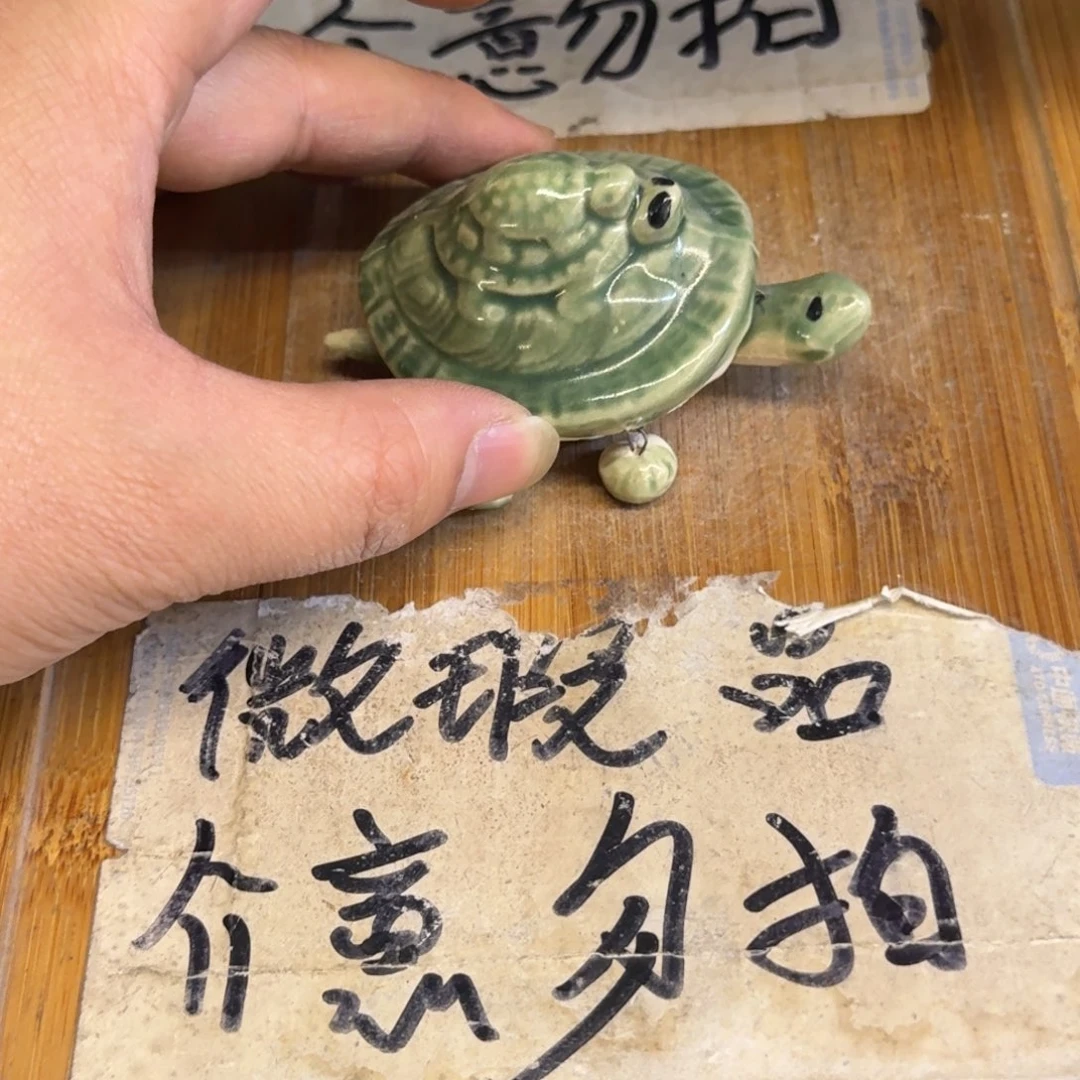 介意勿拍
微瑕品
介意勿拍